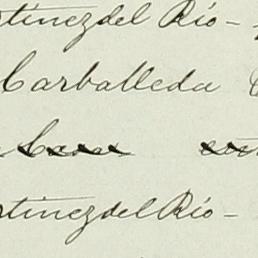 rtinez del Río -
Carballeda
rtinez del Río -